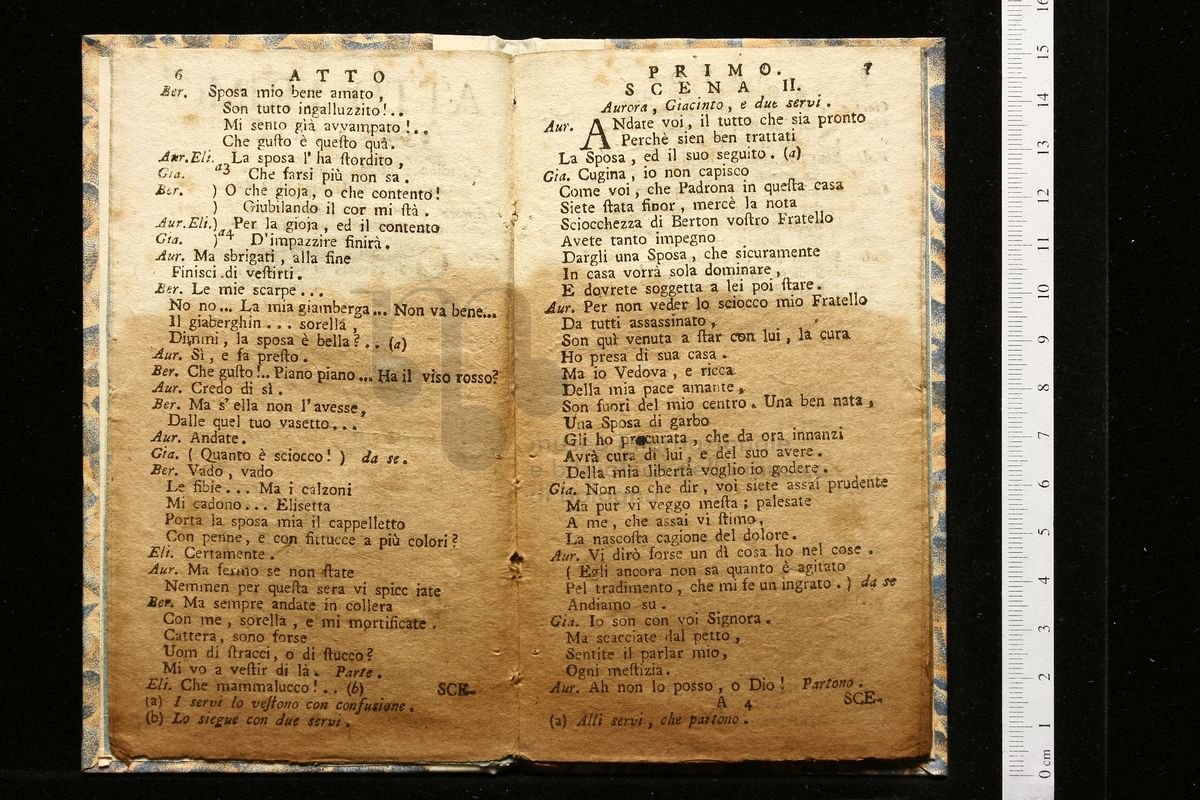 6 ATTO
Ber. Sposa mio bene amato,
Son tutto ingalluzzito!..
Mi sento già avvampato!..
Che gusto è questo quà.
Aur.Eli. La sposa l'ha stordito,
Gia. a3 Che farsi più non sa.
Ber. ) O che gioja, o che contento!
) Giubilando il cor mi stà.
Aur.Eli.) Per la gioja, ed il contento
Gia. )a4 D'impazzire finirà.
Aur. Ma sbrigati, alla fine
Finisci di vestirti.
Ber. Le mie scarpe...
No no... La mia giamberga... Non va bene...
Il giaberghin... sorella,
Dimmi, la sposa è bella?.. (a)
Aur. Sì, e fa presto.
Ber. Che gusto!.. Piano piano... Ha il viso rosso?
Aur. Credo di sì.
Ber. Ma s'ella non l'avesse,
Dalle quel tuo vasetto...
Aur. Andate.
Gia. (Quanto è sciocco!) da se.
Ber. Vado, vado
Le fibie... Ma i calzoni
Mi cadono... Elisetta
Porta la sposa mia il cappelletto
Con penne, e con fittucce a più colori?
Eli. Certamente.
Aur. Ma fermo se non state
Nemmen per questa sera vi spicc iate
Ber. Ma sempre andate in collera
Con me, sorella, e mi mortificate.
Cattera, sono forse
Uom di stracci, o di stucco?
Mi vo a vestir di là. Parte.
Eli. Che mammalucco!.. (b) SCE-
(a) I servi lo vestono con confusione.
(b) Lo siegue con due servi.
PRIMO. 7
SCENA II.
Aurora, Giacinto, e due servi.
Aur. ANdate voi, il tutto che sia pronto
Perchè sien ben trattati
La Sposa, ed il suo seguito. (a)
Gia. Cugina, io non capisco
Come voi, che Padrona in questa casa
Siete stata finor, mercè la nota
Sciocchezza di Berton vostro Fratello
Avete tanto impegno
Dargli una Sposa, che sicuramente
In casa vorrà sola dominare,
E dovrete soggetta a lei poi stare.
Aur. Per non veder lo sciocco mio Fratello
Da tutti assassinato,
Son quì venuta a star con lui, la cura
Ho presa di sua casa.
Ma io Vedova, e ricca
Della mia pace amante,
Son fuori del mio centro. Una ben nata,
Una Sposa di garbo
Gli ho procurata, che da ora innanzi
Avrà cura di lui, e del suo avere.
Della mia libertà voglio io godere.
Gia. Non so che dir, voi siete assai prudente
Ma pur vi veggo mesta; palesate
A me, che assai vi stimo,
La nascosta cagione del dolore.
Aur. Vi dirò forse un dì cosa ho nel cose.
(Egli ancora non sa quanto è agitato
Pel tradimento, che mi fe un ingrato.) da se
Andiamo su.
Gia. Io son con voi Signora.
Ma scacciate dal petto,
Sentite il parlar mio,
Ogni mestizia.
Aur. Ah non lo posso, o Dio! Partono.
A 4 SCE-
(a) Alli servi, che partono.
0 cm 1 2 3 4 5 6 7 8 9 10 11 12 13 14 15 16